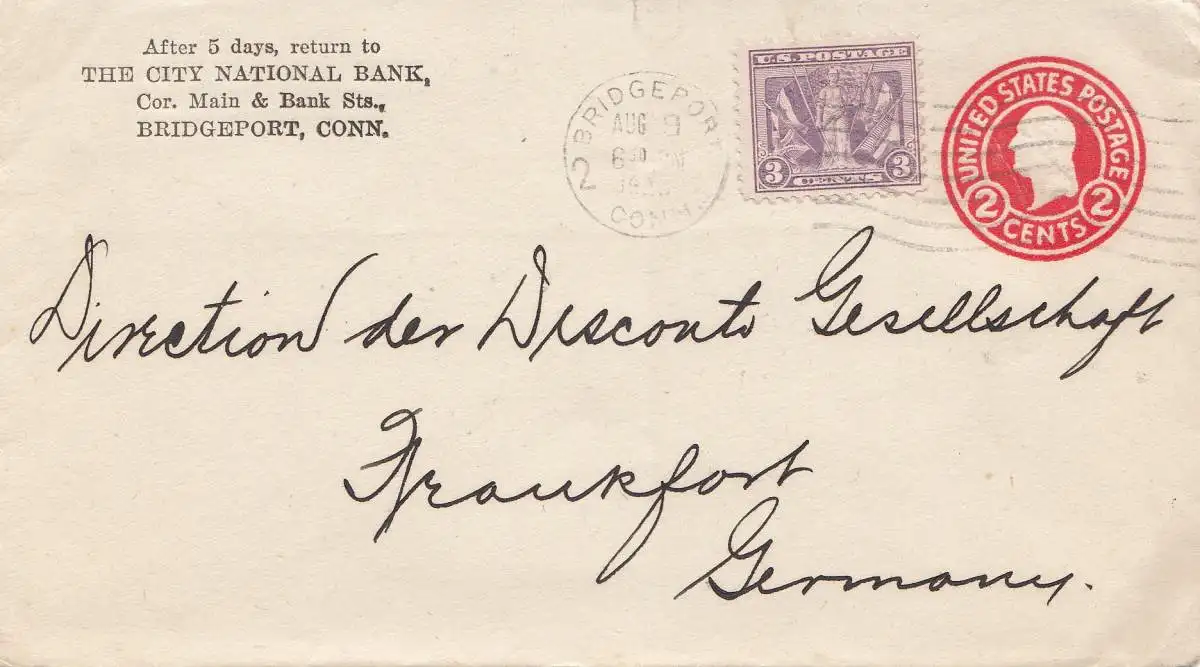 After 5 days, return to
THE CITY NATIONAL BANK,
Cor. Main & Bank Sts.,
BRIDGEPORT, CONN.
2 BRIDGEPORT
AUG 9
6 30
CONN.
U.S. POSTAGE
3 CENTS 3
UNITED STATES POSTAGE
2 CENTS 2
Direction der Disconto Gesellschaft
Frankfort
Germany.